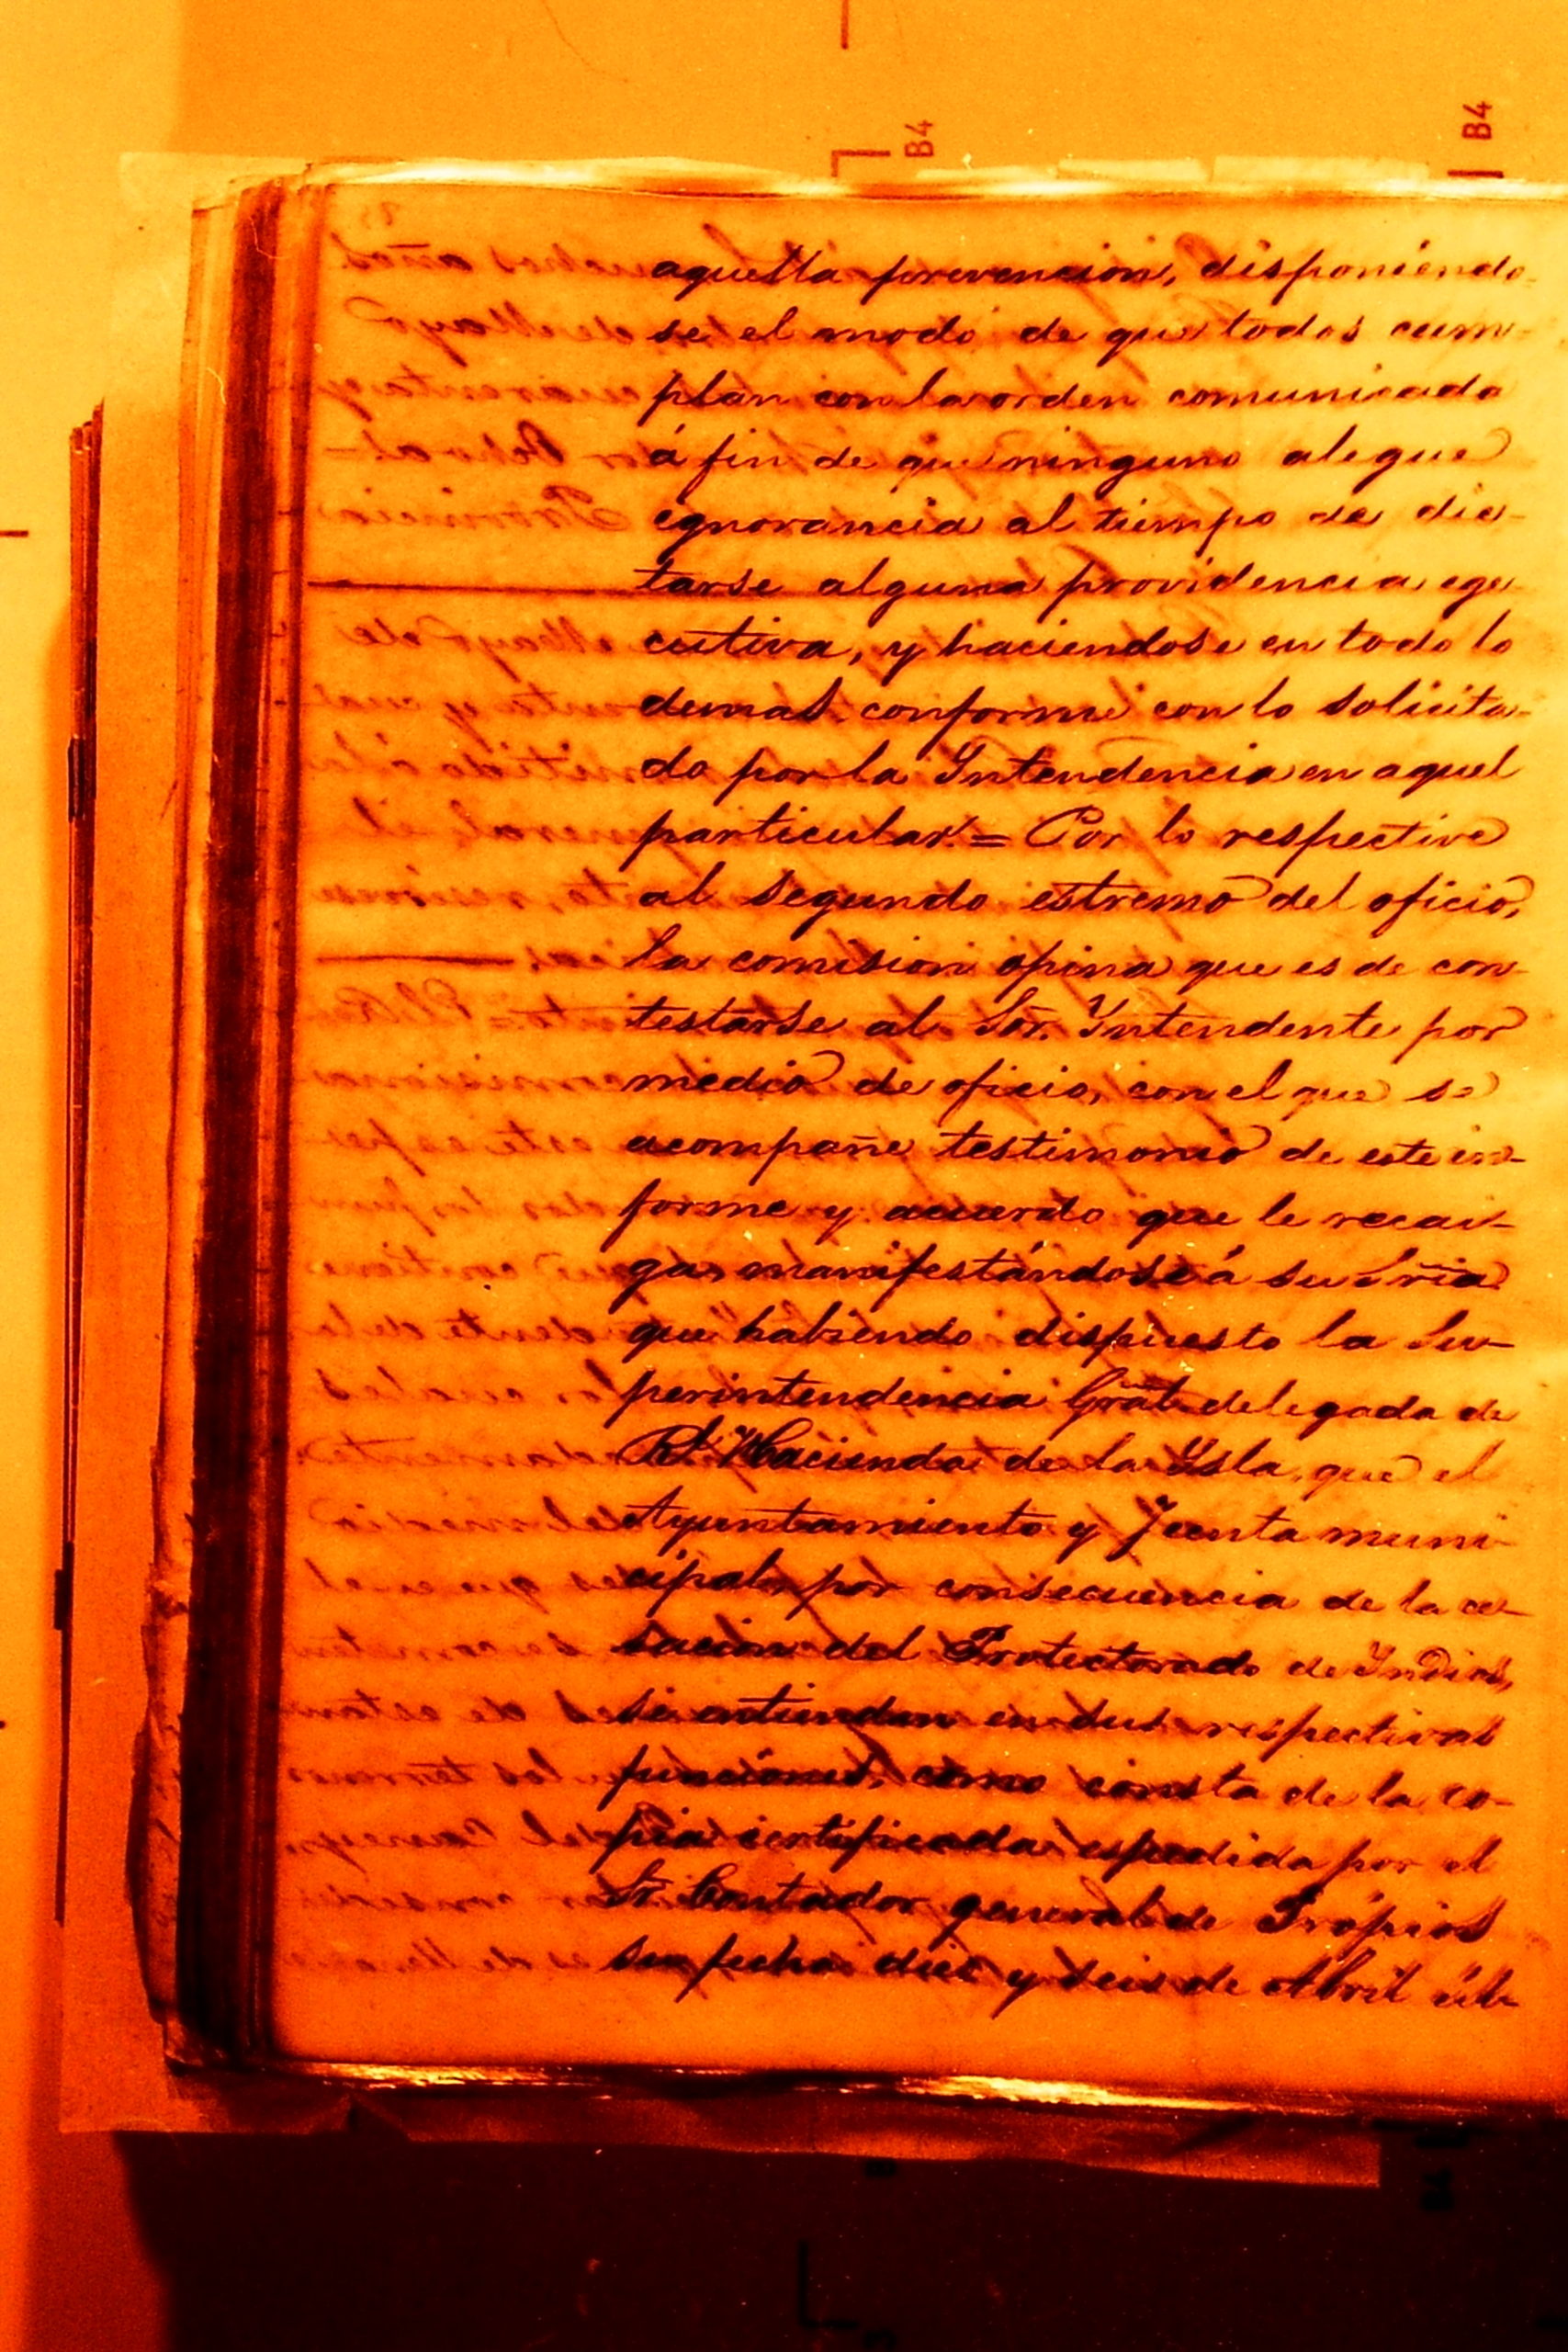 B4
B4
aquella prevencion, disponiendo-
se el modo de que todos cum-
plan con la orden comunicada
á fin de que ninguno alegue
ignorancia al tiempo de dic-
tarse alguna providencia ege-
cutiva, y haciendose en todo lo
demas conforme con lo solicita-
do por la Yntendencia en aquel
particular. = Por lo respective
al segundo estremo del oficio,
la comision opina que es de con-
testarse al Sor. Yntendente por
medio de oficio, con el que se
acompañe testimonio de este in-
forme y acuerdo que le recai-
ga, manifestándose á su Sria
que habiendo dispuesto la Su-
perintendencia Gral. delegada de
Rl. Hacienda de la Ysla, que el
Ayuntamiento y Junta muni-
cipal, por consecuencia de la ce-
sacion del Protectorado de Yndios,
se entiendan en sus respectivas
funciones, como consta de la co-
pia certificada espedida por el
Sr. Contador general de Própios
su fecha diez y seis de Abril últi-